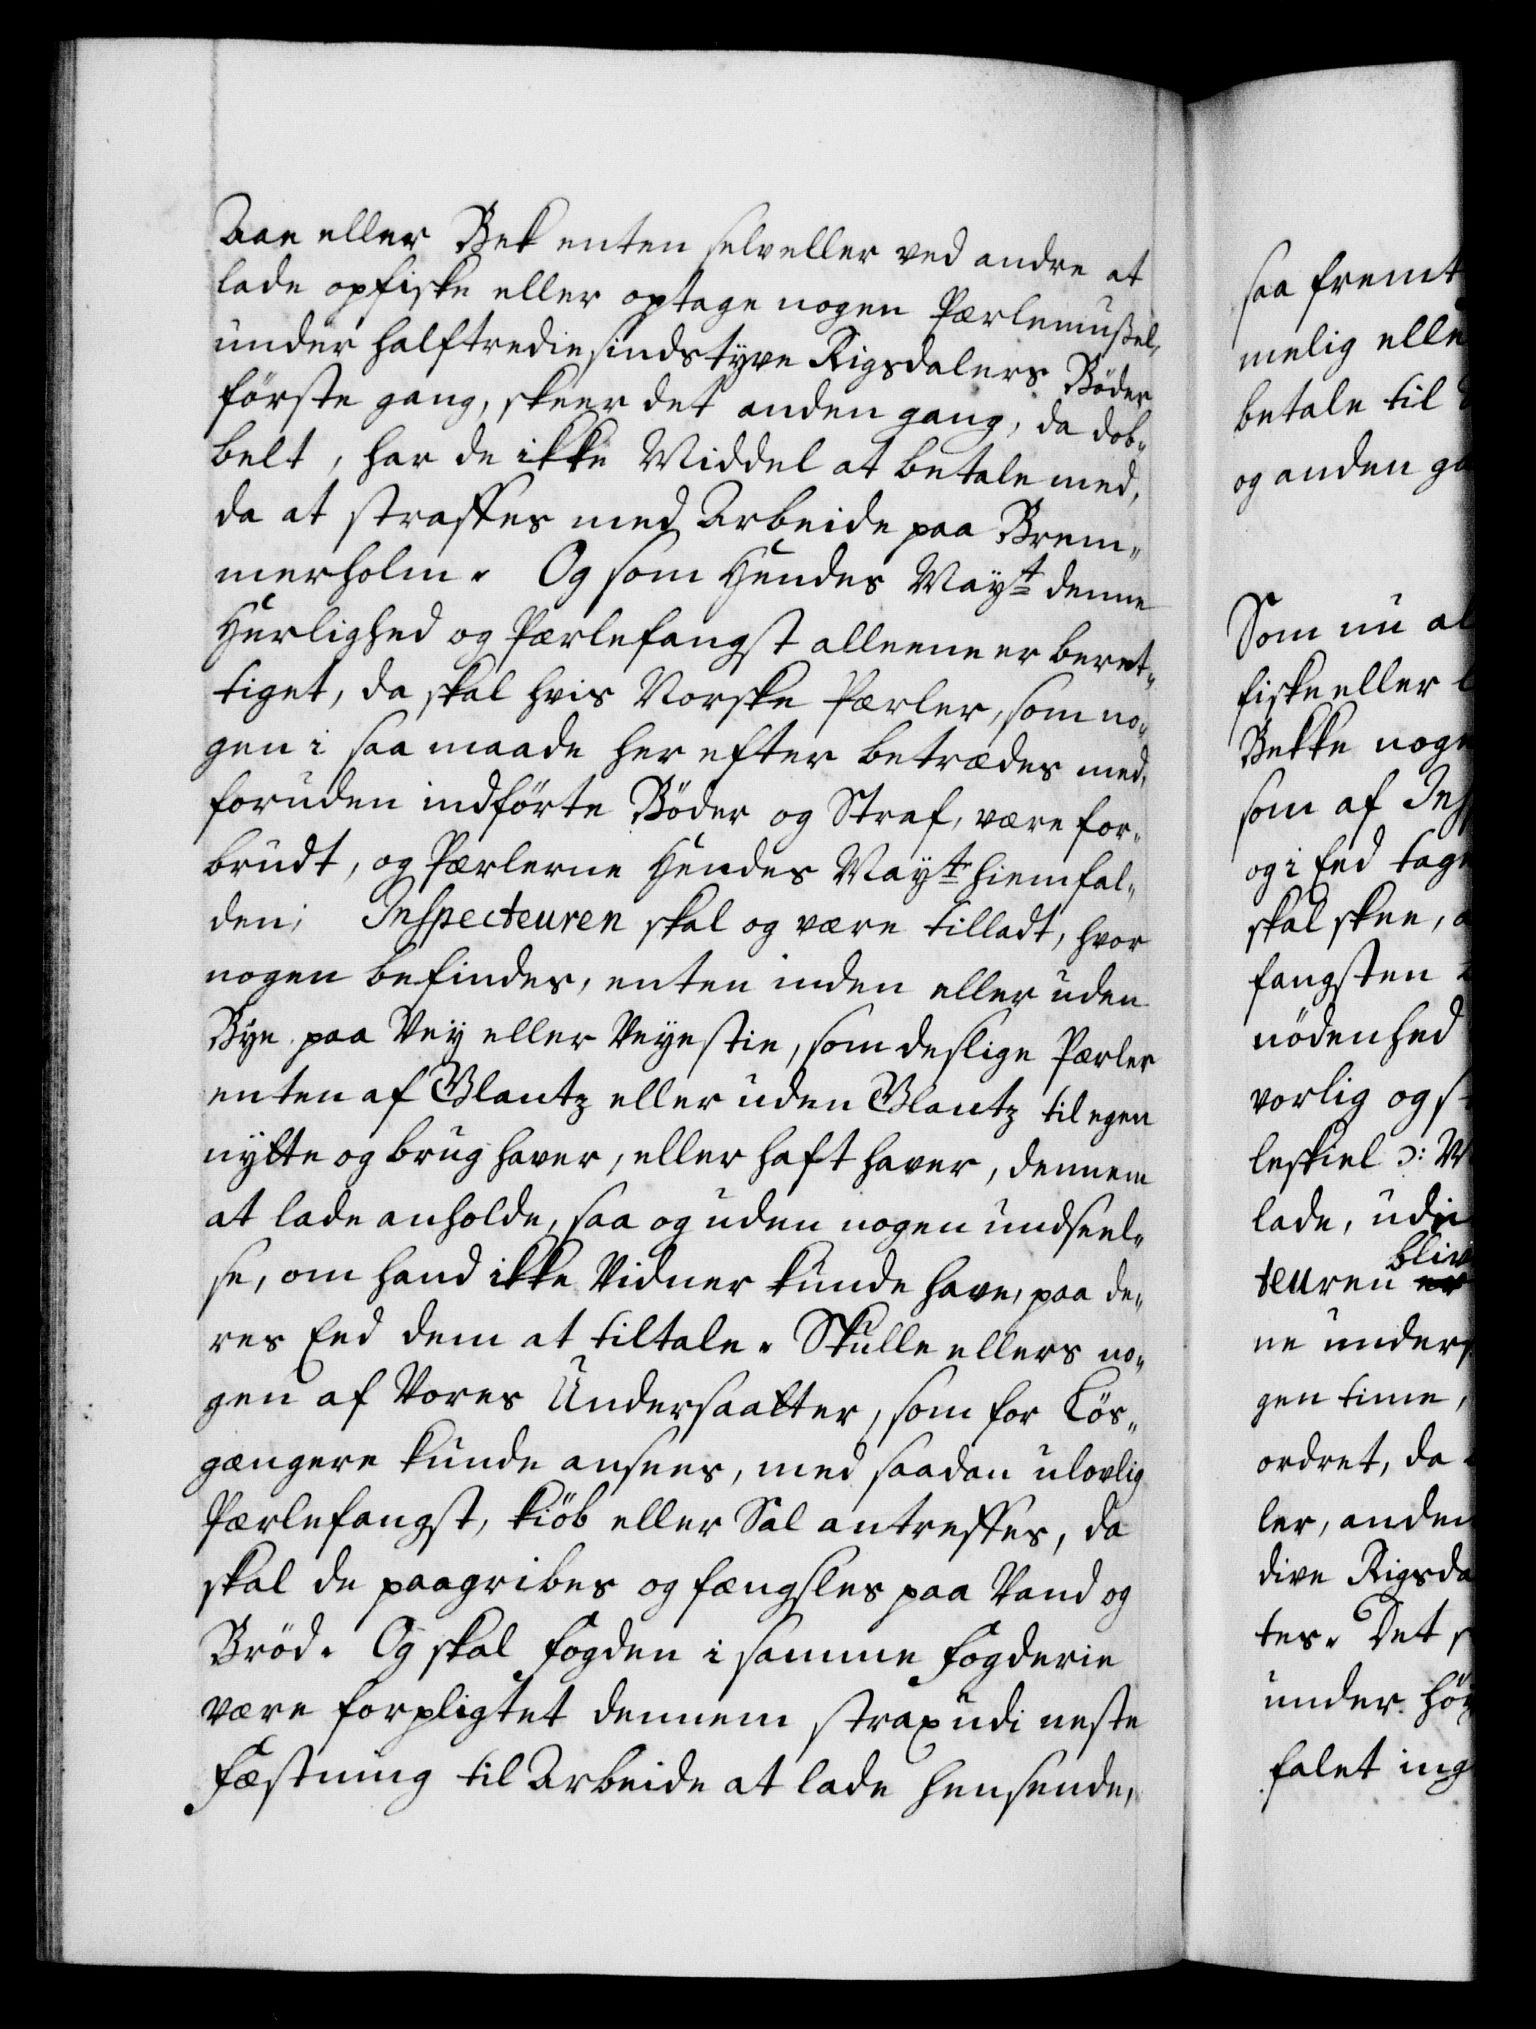 Aae eller Bek enten selv eller ved andre at
lade opfiske eller optage nogen Pærlemußel,
under halftrediesindstyve Rigsdalers Böder
förste gang, skeer det anden gang, da dob„
belt, har de ikke Middel at betale med,
da at straffes med Arbeide paa Brem„
merholm. Og som Hendes Mayt denne
Herlighed og Pærlefangst alleene er beret„
tiget, da skal hvis Norske Pærler, som no„
gen i saa maade her efter betrædes med,
foruden indförte Böder og Straf, være for„
brudt, og Pærlerne Hendes Mayt hiemfal„
den; Inspecteuren skal og være tilladt, hvor
nogen befindes, enten inden eller uden
Bye paa Vey eller Veyestie, som deslige Pærler
enten af Glantz eller uden Glantz til egen
nytte og brug haver, eller haft haver, dennem
at lade anholde, saa og uden nogen undseel„
se, om hand ikke Vidner kunde have, paa de„
res Eed dem at tiltale. Skulle ellers no„
gen af Vores Undersaatter, som for Lös„
gængere kunde ansees, med saadan ulovlig
Pærlefangst, kiöb eller Sal antreffes, da
skal de paagribes og fængsles paa Vand og
Bröd. Og skal fogden i samme fogderie
være forpligtet dennem strax udi neste
Fæstning til Arbeide at lade hensende,
saa fremt
melig elle
betale til
og anden ga
Som nu al
fiske eller
Bekke noge
som af Insp
og i Eed tag
skal skee,
fangsten
nödenhed
vorlig og s
leskiel ɔ:
lade, udi
bliv
teuren er
ne unders
gen time,
ordret, da
ler, anden
dive Rigsda
tes. Det s
under höy
falet ing